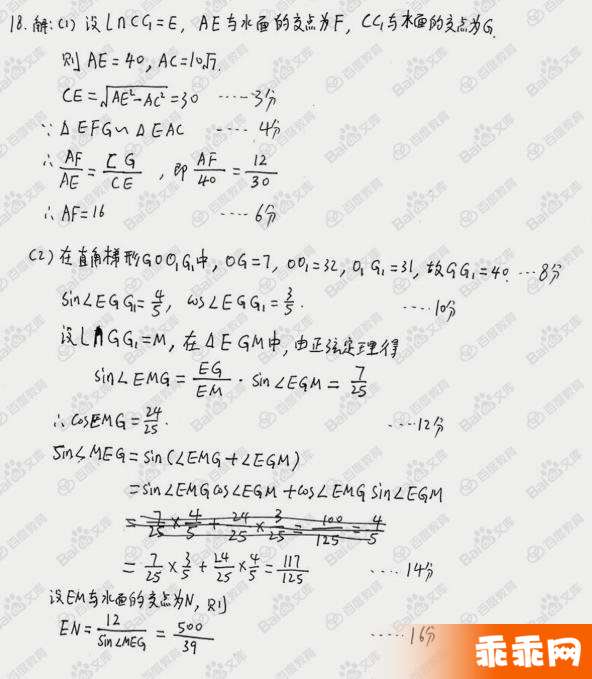 18.解:(1)设l∩CC₁=E, AE与水面的交点为F, CC₁与水面的交点为G.
则AE=40, AC=10√7.
CE=√AE²-AC²=30 ·····3分
∵△EFG∽△EAC ····4分
∴AF/AE=CG/CE, 即AF/40=12/30
∴AF=16 ····6分
(2)在直角梯形GOO₁G₁中, OG=7, OO₁=32, O₁G₁=31, 故GG₁=40. ···8分
sin∠EGG₁=4/5, cos∠EGG₁=3/5. ····10分
设l∩GG₁=M, 在△EGM中, 由正弦定理得
sin∠EMG=EG/EM·sin∠EGM=7/25
∴cosEMG=24/25. ····12分
sin∠MEG=sin(∠EMG+∠EGM)
=sin∠EMGcos∠EGM+cos∠EMGsin∠EGM
=7/25×4/5+24/25×3/25=100/125=4/5
=7/25×3/5+24/25×4/5=117/125 ····14分
设EM与水面的交点为N, 则
EN=12/sin∠MEG=500/39 ·····16分
乖乖网